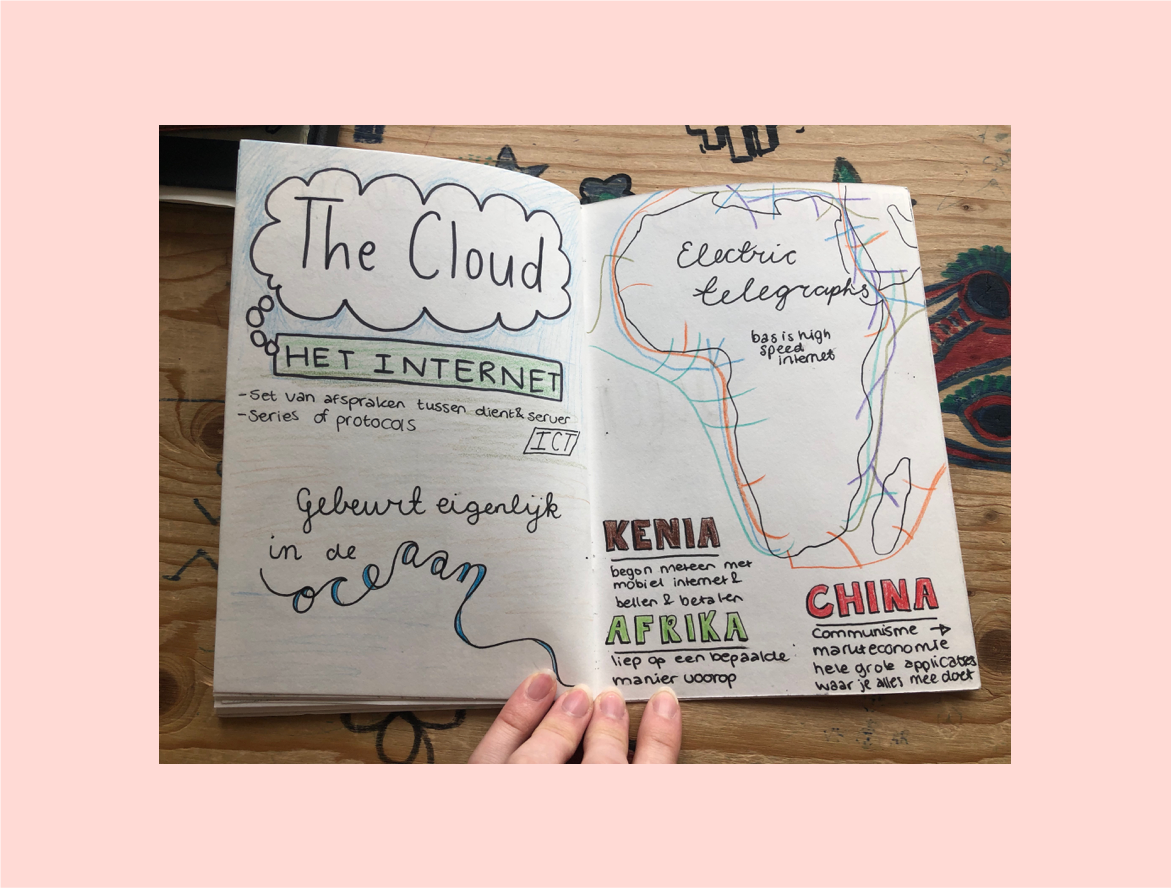 The Cloud
HET INTERNET
-Set van afspraken tussen client & server
-Series of protocols
ICT
Gebeurt eigenlijk
in de
oceaan
Electric
telegraphs
basis high
speed
internet
KENIA
begon meteen met
mobiel internet &
bellen & betalen
AFRIKA
liep op een bepaalde
manier voorop
CHINA
Communisme →
markteconomie
hele grote applicaties
waar je alles mee doet